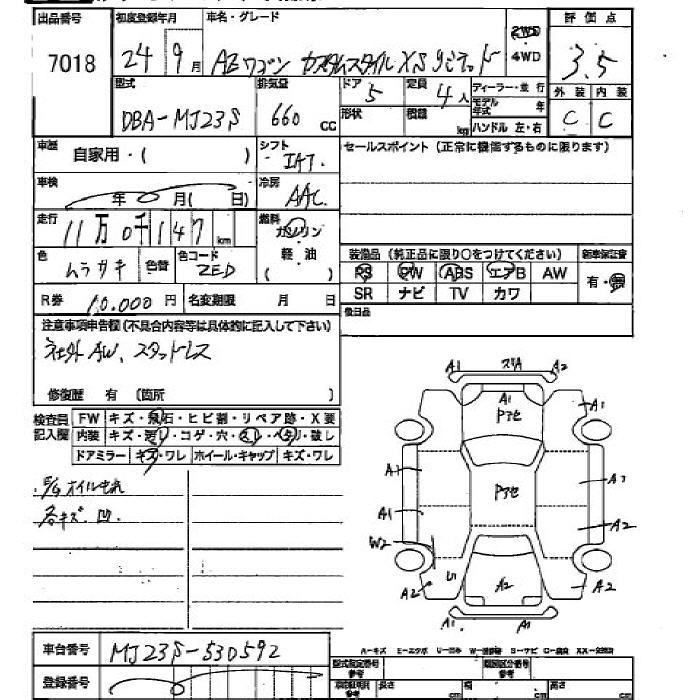 出品番号 初度登録年月 車名・グレード 2WD 評価点
7018 24 9月 AZワゴン カスタムスタイル XSリミテッド 4WD 3.5
型式 排気量 ドア 5 定員 4人 ディーラー・並行 外装 内装
DBA-MJ23S 660 CC 形状 積載 kg モデル年式 年 C C
ハンドル 左・右
車歴 自家用・( ) シフト IAT セールスポイント (正常に機能するものに限ります)
車検 年 月( 日) 冷房 AAC
走行 11万0千147km 燃料 ガソリン
軽・油
( )
色 ムラサキ 色替 色コード ZED
装備品 (純正品に限り○をつけてください) 新車保証書
PS PW ABS エアB AW 有・無
SR ナビ TV カワ
R券 10,000円 名変期限 月 日
後日品
注意事項申告欄(不具合内容等は具体的に記入して下さい)
社外AW、スタッドレス
修復歴 有 (箇所 )
検査員記入欄 FW キズ・飛石・ヒビ割・リペア跡・X要
内装 キズ・汚レ・コゲ・穴・スレ・ベタリ・破レ
ドアミラー キズ・ワレ ホイール・キャップ キズ・ワレ
E/G オイルもれ
各キズ、凹.
A1 スリA A2
A1 Pアセ A1
A1 Pアセ A1
A1 A2
W2
A2 U1 A2 A2
A1 A1
車台番号 MJ23S-530592
A-キズ E-エクボ U-凹み W-補修跡 S-サビ C-腐食 XX-交換済
登録番号
型式指定番号 参考 類別区分番号 参考
長さ cm 幅 cm 高さ cm